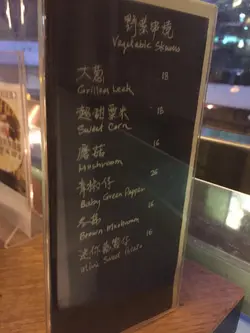 野菜串燒
Vegetable Skewers
大葱 18
Grilled Leek
超甜粟米 18
Sweet Corn
蘑菇 16
Mushroom
青椒仔 26
Baby Green Pepper
冬菇 16
Brown Mushroom
迷你蕃薯仔 16
Mini Sweet Potato